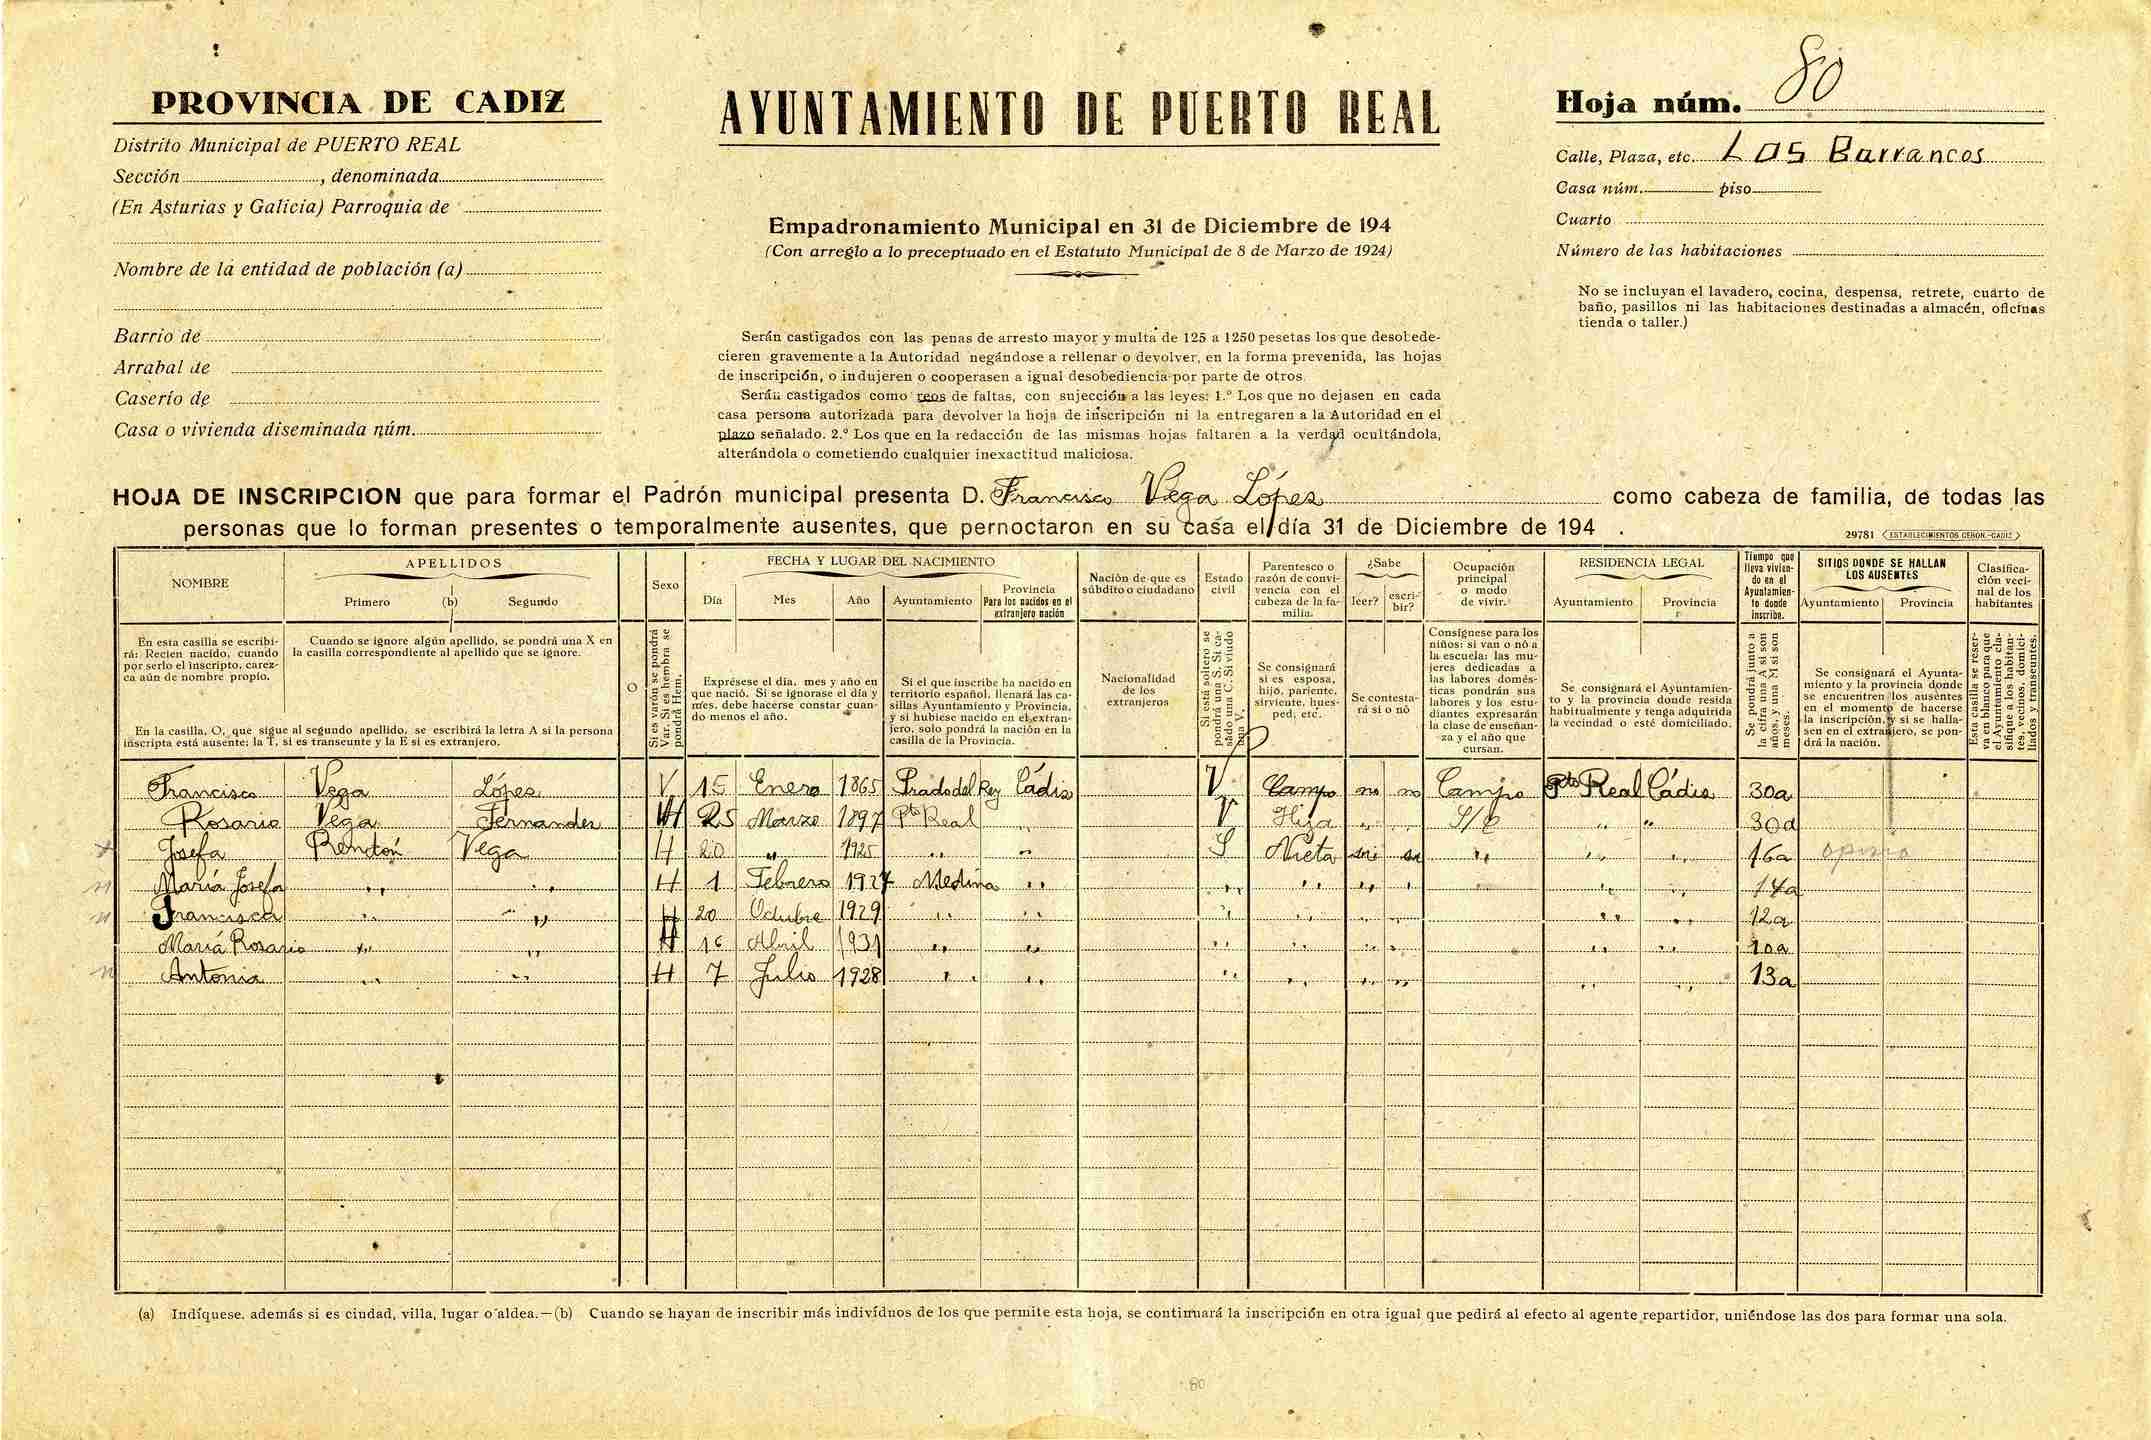 PROVINCIA DE CADIZ
Distrito Municipal de PUERTO REAL
Sección , denominada
(En Asturias y Galicia) Parroquia de
Nombre de la entidad de población (a)
Barrio de
Arrabal de
Caserío de
Casa o vivienda diseminada núm.
AYUNTAMIENTO DE PUERTO REAL
Empadronamiento Municipal en 31 de Diciembre de 194
(Con arreglo a lo preceptuado en el Estatuto Municipal de 8 de Marzo de 1924)
Serán castigados con las penas de arresto mayor y multa de 125 a 1250 pesetas los que desobede-
cieren gravemente a la Autoridad negándose a rellenar o devolver, en la forma prevenida, las hojas
de inscripción, o indujeren o cooperasen a igual desobediencia por parte de otros.
Serán castigados como reos de faltas, con sujección a las leyes: 1.º Los que no dejasen en cada
casa persona autorizada para devolver la hoja de inscripción ni la entregaren a la Autoridad en el
plazo señalado. 2.º Los que en la redacción de las mismas hojas faltaren a la verdad ocultándola,
alterándola o cometiendo cualquier inexactitud maliciosa.
Hoja núm. 80
Calle, Plaza, etc. Los Barrancos
Casa núm. piso
Cuarto
Número de las habitaciones
No se incluyan el lavadero, cocina, despensa, retrete, cuarto de
baño, pasillos ni las habitaciones destinadas a almacén, oficinas
tienda o taller.)
HOJA DE INSCRIPCION que para formar el Padrón municipal presenta D. Francisco Vega López como cabeza de familia, de todas las
personas que lo forman presentes o temporalmente ausentes, que pernoctaron en su casa el día 31 de Diciembre de 194 .
29781 ESTABLECIMIENTOS CERON.-CADIZ
NOMBRE
APELLIDOS
Primero (b) Segundo
O
Sexo
FECHA Y LUGAR DEL NACIMIENTO
Día Mes Año Ayuntamiento
Provincia
Para los nacidos en el
extranjero nación
Nación de que es
súbdito o ciudadano
Estado
civil
Parentesco o
razón de convi-
vencia con el
cabeza de la fa-
milia.
¿Sabe
leer? escri-
bir?
Ocupación
principal
o modo
de vivir.
RESIDENCIA LEGAL
Ayuntamiento Provincia
Tiempo que
lleva vivien-
do en el
Ayuntamien-
to donde
inscribe.
SITIOS DONDE SE HALLAN
LOS AUSENTES
Ayuntamiento Provincia
Clasifica-
ción veci-
nal de los
habitantes
En esta casilla se escribi-
rá: Recien nacido, cuando
por serlo el inscripto, carez-
ca aún de nombre propio.
Cuando se ignore algún apellido, se pondrá una X en
la casilla correspondiente al apellido que se ignore.
En la casilla, O, que sigue al segundo apellido, se escribirá la letra A si la persona
inscripta está ausente; la T, si es transeunte y la E si es extranjero.
Si es varón se pondrá
Var. Si es hembra se
pondrá Hem.
Exprésese el día, mes y año en
que nació. Si se ignorase el día y
mes, debe hacerse constar cuan-
do menos el año.
Si el que inscribe ha nacido en
territorio español, llenará las ca-
sillas Ayuntamiento y Provincia,
y si hubiese nacido en el extran-
jero, solo pondrá la nación en la
casilla de la Provincia.
Nacionalidad
de los
extranjeros
Si está soltero se
pondrá una S. Si ca-
sado una C. Si viudo
una V.
Se consignará
si es esposa,
hijo, pariente,
sirviente, hues-
ped, etc.
Se contesta-
rá si o nó
Consígnese para los
niños: si van o nó a
la escuela: las mu-
jeres dedicadas a
las labores domés-
ticas pondrán sus
labores y los estu-
diantes expresarán
la clase de enseñan-
za y el año que
cursan.
Se consignará el Ayuntamien-
to y la provincia donde resida
habitualmente y tenga adquirida
la vecindad o esté domiciliado.
Se pondrá junto a
la cifra una A si son
años, y una M si son
meses.
Se consignará el Ayunta-
miento y la provincia donde
se encuentren los ausentes
en el momento de hacerse
la inscripción, y si se halla-
sen en el extranjero, se pon-
drá la nación.
Esta casilla se reser-
va en blanco para que
el Ayuntamiento cla-
sifique a los habitan-
tes, vecinos, domici-
liados y transeuntes.
Francisco Vega López V 15 Enero 1865 Prado del Rey Cádiz V Campo no no Campo Pto Real Cádiz 30a
Rosario Vega Fernandez H 25 Marzo 1897 Pto Real " V Hija " " S/C " " 30a
Josefa Rendón Vega H 20 " 1925 " " S Nieta " " " 16a
María Josefa " " H 1 Febrero 1927 Medina " " " " " " " " 14a
Francisca " " H 20 Octubre 1929 " " " " " " " " 12a
María Rosario " " H 16 Abril 1931 " " " " " " " " 10a
Antonia " " H 7 Julio 1928 " " " " " " " " 13a
(a) Indíquese, además si es ciudad, villa, lugar o aldea.—(b) Cuando se hayan de inscribir más indivíduos de los que permite esta hoja, se continuará la inscripción en otra igual que pedirá al efecto al agente repartidor, uniéndose las dos para formar una sola.
80